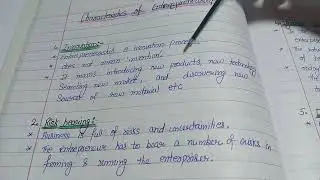 Characteristics of Entrepreneurship
1. Innovation:
* Entrepreneurship is a innovation process
* does not mean invention.
* It means introducing new products, new technology
Searching new market, and discovering new
Sources of raw material etc.
2. Risk bearing:
* Business is full of risks and uncertainities.
* The entrepreneur has to bear a number of risks in
forming & running the enterprise.
5.